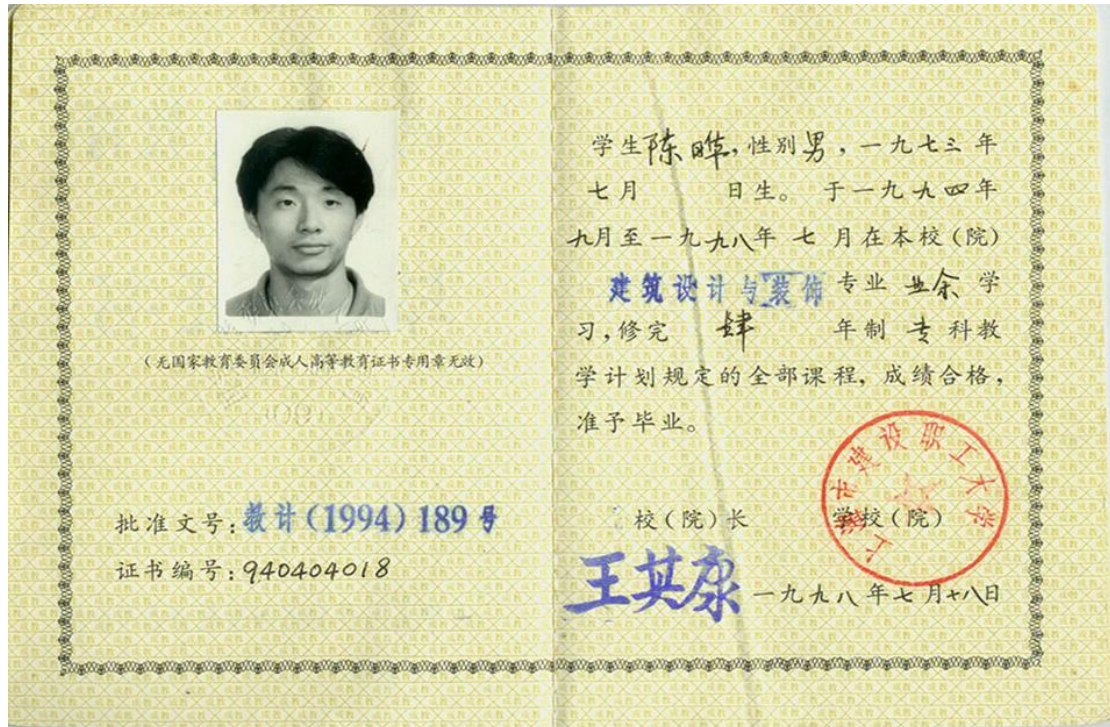 （无国家教育委员会成人高等教育证书专用章无效）
批准文号：教计（1994）189号
证书编号：940404018
学生陈晔，性别男，一九七三年
七月 日生。于一九九四年
九月至一九九八年七月在本校（院）
建筑设计与装饰专业业余学
习，修完 肆 年制专科教
学计划规定的全部课程，成绩合格，
准予毕业。
校（院）长 学校（院）
王其康
一九九八年七月十八日
上海市建设职工大学